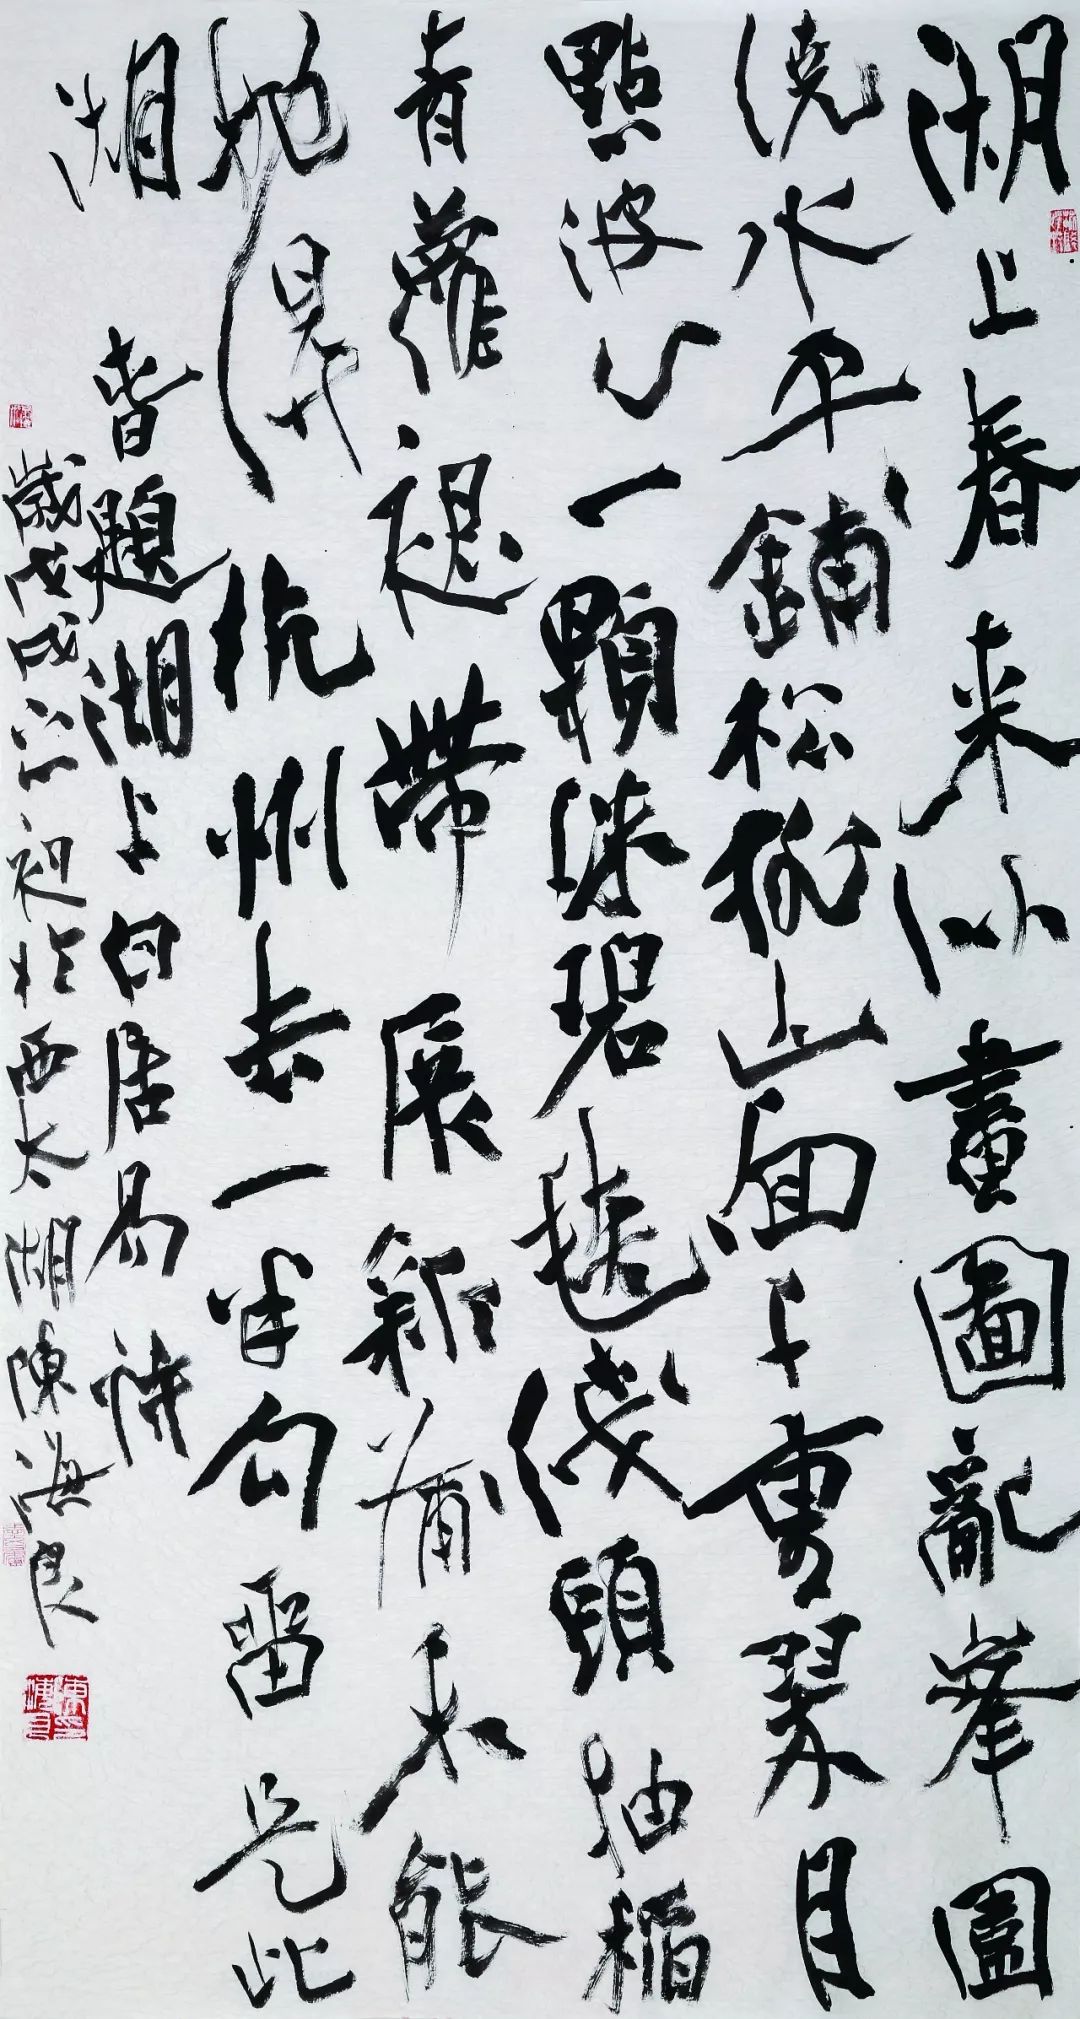 湖上春来似畫圖亂峯圍
繞水平鋪松排山面千重翠月
點波心一顆珠碧毯綫頭抽稻
青蘿帶展新蒲未能
抛得杭州去一半勾留是此
湖 春題湖上白居易詩
歲戊戌初於西太湖陳海良